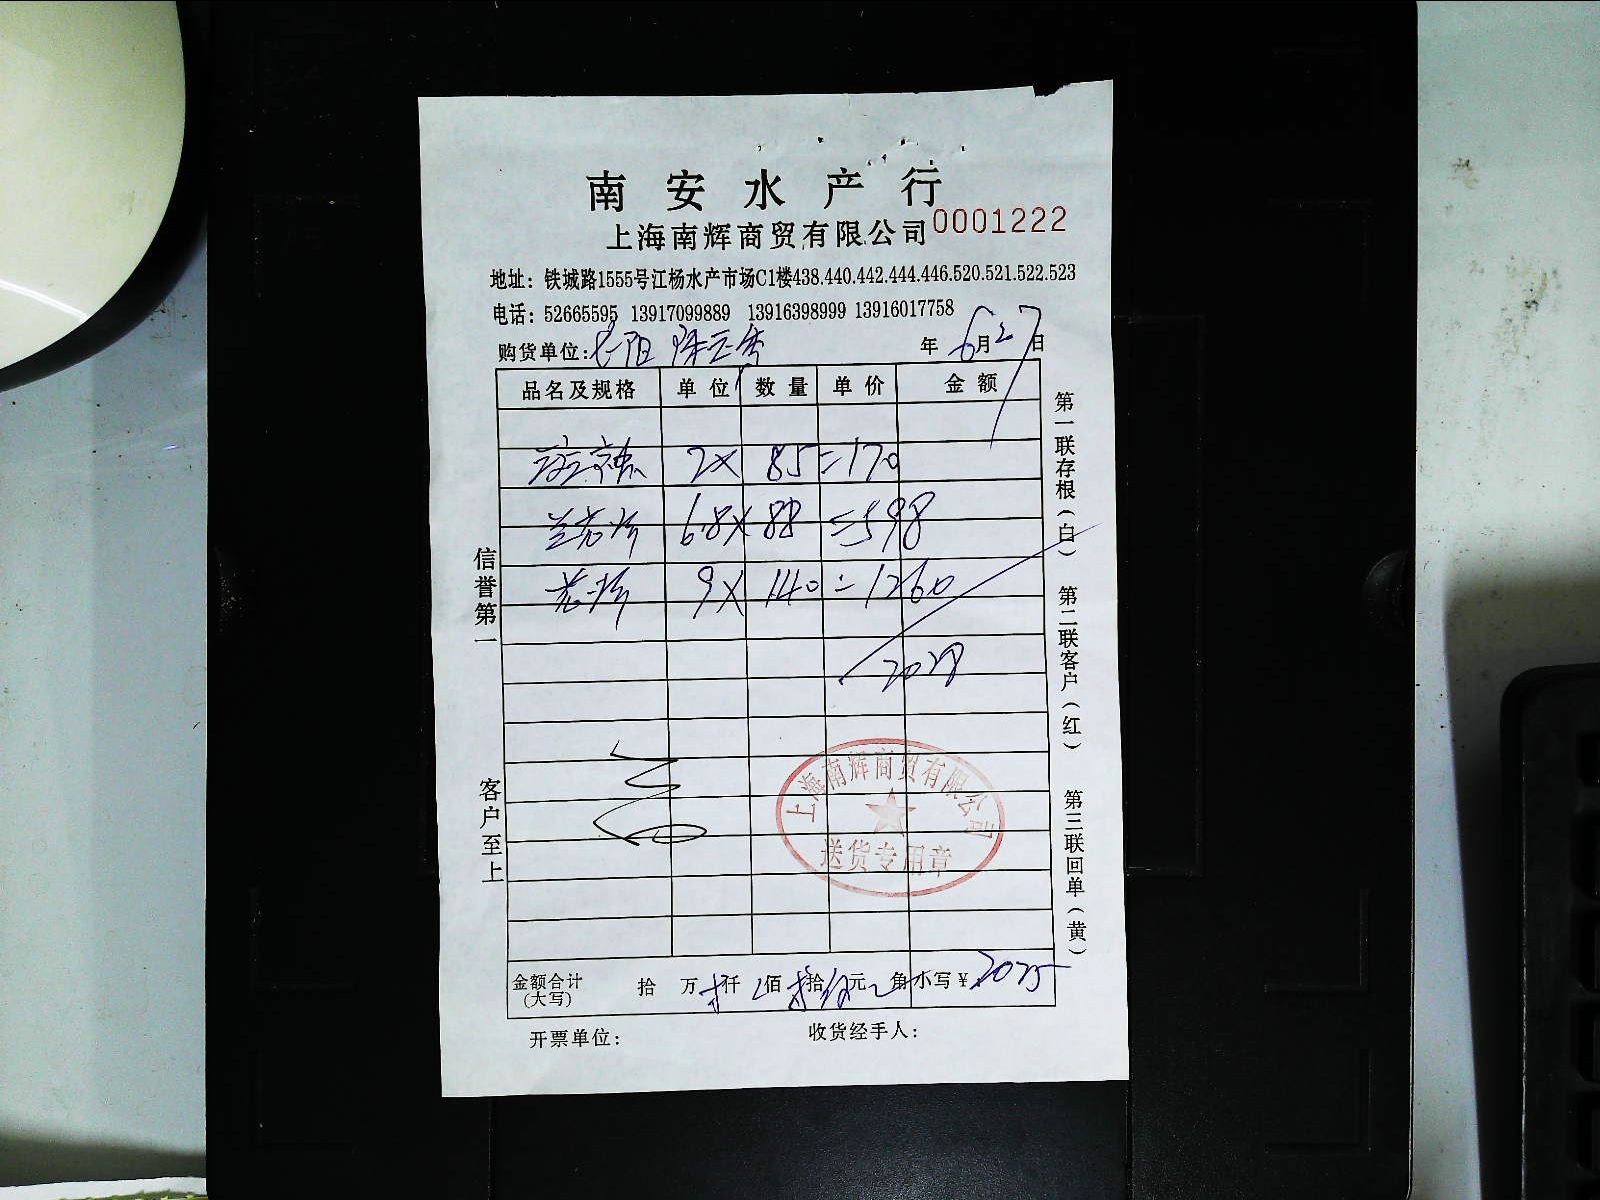 南安水产行
上海南辉商贸有限公司 0001222
地址：铁城路1555号江杨水产市场C1楼438.440.442.444.446.520.521.522.523
电话：52665595 13917099889 13916398999 13916017758
购货单位： 年 6月27日
品名及规格 单位 数量 单价 金额
2× 85=170
6.8× 88=598
9× 140=1260
2028
金额合计(大写) 拾 万 仟 佰 拾 元 角 小写￥2025
开票单位： 收货经手人：
信誉第一
客户至上
第一联存根(白)
第二联客户(红)
第三联回单(黄)
上海南辉商贸有限公司
送货专用章